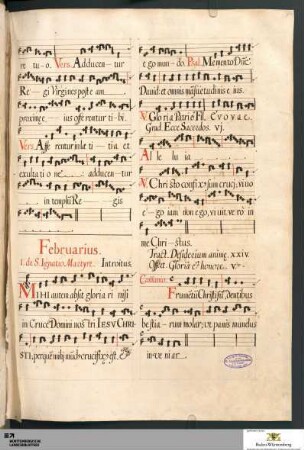 re tu-o. Vers. Adducen-tur
Re-gi Virgines post e am
proxime- ius offe rentur ti-bi.
Vers. Affe rentur in læ ti-tia et
exulta ti o ne adducen-tur
in templū Re gis
Februarius.
1. de S. Ignatio Martyre. Introitus.
MIhi autem absit gloria ri nisi
in Cruce Domini nos tri IESV CHRI
STI, per quē mihi mūdus crucifixus est, et
ego mun-do. Psal. Memento Dñe
Dauid: et omnis māsuetudinis e ius.
V. Gloria Patri et Fil. Evovae.
Grad. Ecce Sacerdos. vj.
Al le lu ia
V. Chri sto confixus sum cruci; viuo
ego iam non ego, vi uit ve rò in
me Chri-stus.
Tract. Desiderium animæ. xxiv.
Offert. Gloria et honore.
Communio. Frumentū Christi sū, dentibus
bestia-rum molar; vt panis mundus
in-ve ni ar.
Baden-Württemberg